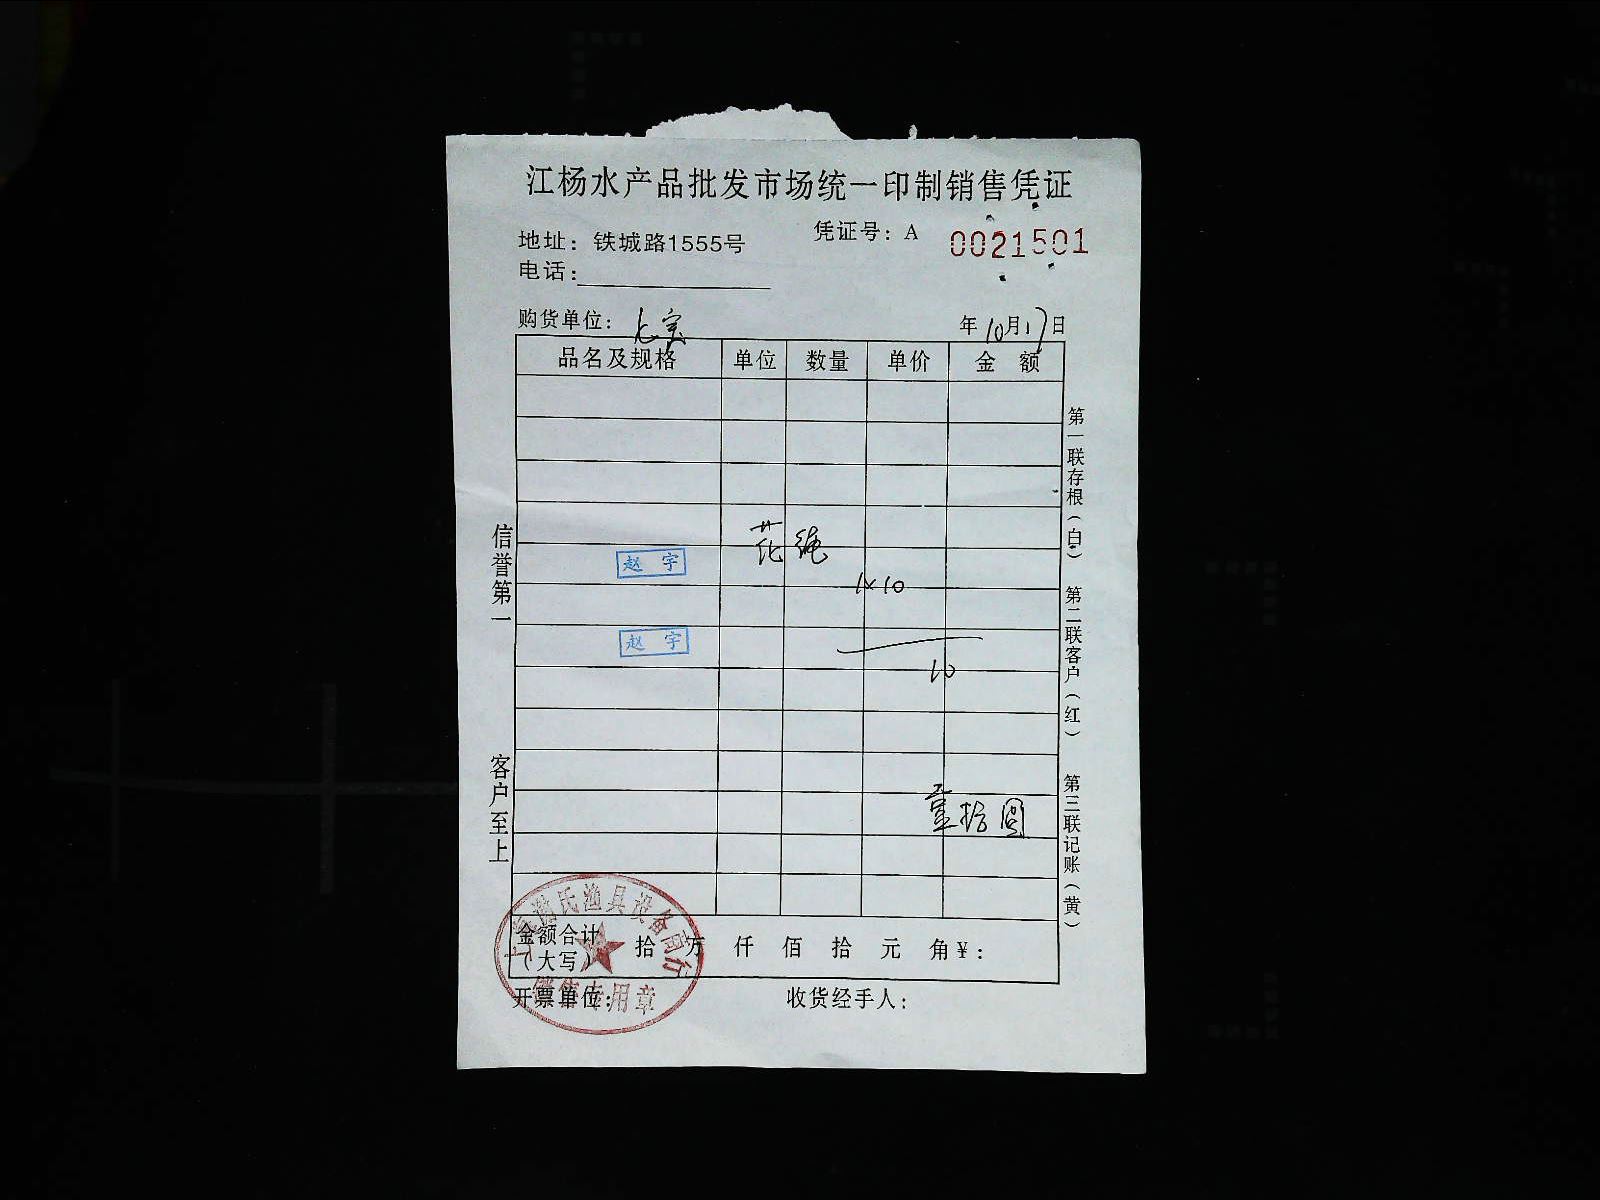 江杨水产品批发市场统一印制销售凭证
凭证号：A 0021501
地址：铁城路1555号
电话：
购货单位：七宝
年10月17日
品名及规格 单位 数量 单价 金 额
花绳
赵 宇
1×10
赵 宇
10
壹拾圆
金额合计（大写） 拾 万 仟 佰 拾 元 角￥：
开票单位： 收货经手人：
信誉第一 客户至上
第一联存根（白） 第二联客户（红） 第三联记账（黄）
氏渔具设备商行
销售专用章